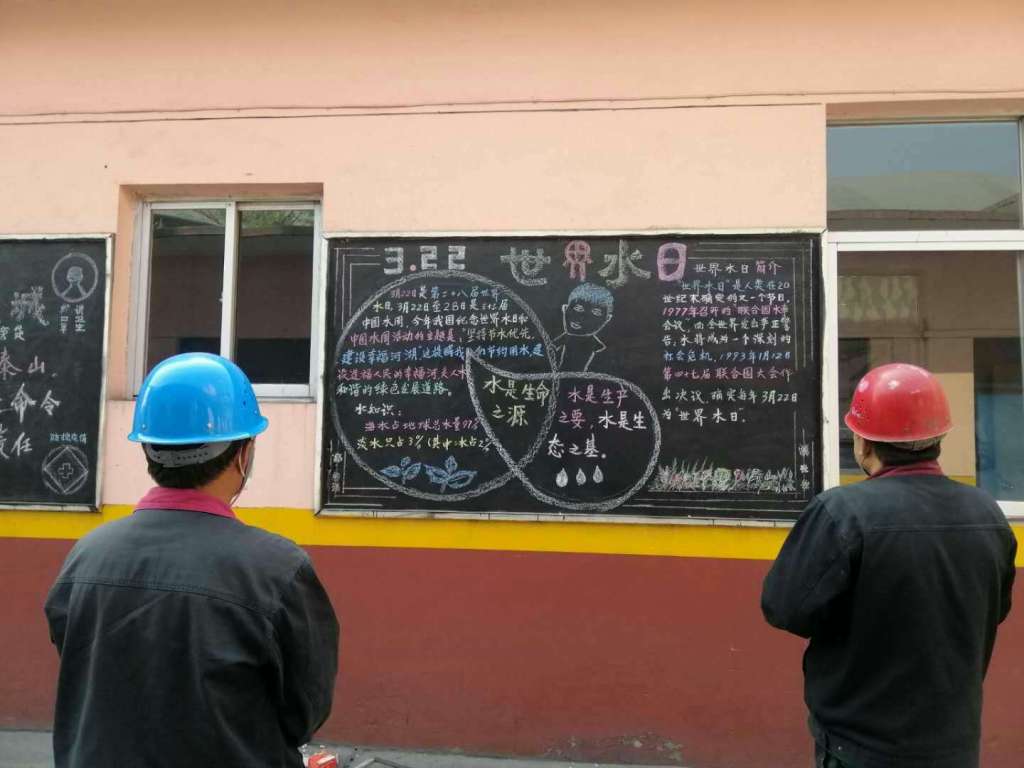 城
讲卫生
泰山
命令
责任
防控疫情
3.22 世界水日
3月22日是第二十八届世界
水日，3月22日至28日是三十三届
中国水周，今年我国纪念世界水日和
中国水周活动的主题是，"坚持节水优先，
建设幸福河湖"
和谐的绿色发展道路。
水知识：
海水占地球总水量97%
淡水只占3%(其中冰占2%
水是生命
之源
水是生产
之要，水是生
态之基。
世界水日简介
"世界水日"是人类在20
世纪末确定的又一个节日，
1977年召开的"联合国水事
会议"，向全世界发出严正警
告，水将成为一个深刻的
社会危机，1993年1月12日
第四十七届联合国大会作
出决议，确定每年3月22日
为"世界水日"。